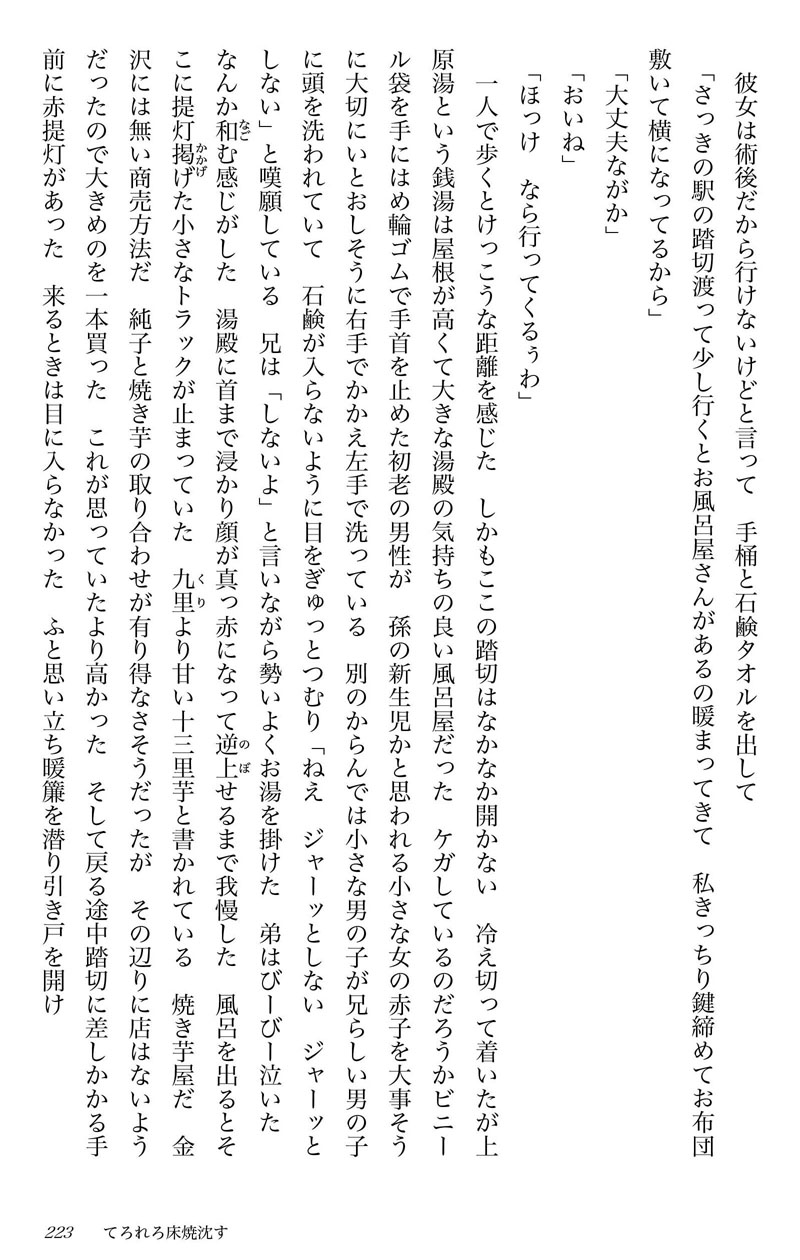 彼女は術後だから行けないけどと言って　手桶と石鹸タオルを出して
「さっきの駅の踏切渡って少し行くとお風呂屋さんがあるの暖まってきて　私きっちり鍵締めてお布団
敷いて横になってるから」
「大丈夫ながか」
「おいね」
「ほっけ　なら行ってくるぅわ」
一人で歩くとけっこうな距離を感じた　しかもここの踏切はなかなか開かない　冷え切って着いたが上
原湯という銭湯は屋根が高くて大きな湯殿の気持ちの良い風呂屋だった　ケガしているのだろうかビニー
ル袋を手にはめ輪ゴムで手首を止めた初老の男性が　孫の新生児かと思われる小さな女の赤子を大事そう
に大切にいとおしそうに右手でかかえ左手で洗っている　別のからんでは小さな男の子が兄らしい男の子
に頭を洗われていて　石鹸が入らないように目をぎゅっとつむり「ねえ　ジャーッとしない　ジャーッと
しない」と嘆願している　兄は「しないよ」と言いながら勢いよくお湯を掛けた　弟はびーびー泣いた
なんか和なごむ感じがした　湯殿に首まで浸かり顔が真っ赤になって逆上のぼせるまで我慢した　風呂を出るとそ
こに提灯掲かかげげた小さなトラックが止まっていた　九里くりより甘い十三里芋と書かれている　焼き芋屋だ　金
沢には無い商売方法だ　純子と焼き芋の取り合わせが有り得なさそうだったが　その辺りに店はないよう
だったので大きめのを一本買った　これが思っていたより高かった　そして戻る途中踏切に差しかかる手
前に赤提灯があった　来るときは目に入らなかった　ふと思い立ち暖簾を潜り引き戸を開け
223　てろれろ床焼沈す